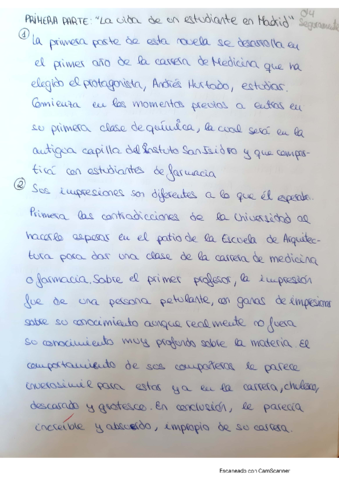 PRIMERA PARTE: "La vida de un estudiante en Madrid"
① La primera parte de esta novela se desarrolla en
el primer año de la carrera de Medicina que ha
elegido el protagonista, Andrés Hurtado, estudiar.
Comienza en los momentos previos a entrar en
su primera clase de química, la cual será en la
antigua capilla del Instituto San Isidro y que compar-
tirá con estudiantes de farmacia
② Sus impresiones son diferentes a lo que él esperaba.
Primero las contradicciones de la Universidad al
hacerle esperar en el patio de la Escuela de Arquitec-
tura para dar una clase de la carrera de medicina
o farmacia. Sobre el primer profesor, la impresión
fue de una persona petulante, con ganas de impresionar
sobre su conocimiento aunque realmente no fuera
su conocimiento muy profundo sobre la materia. El
comportamiento de sus compañeros le parece
inverosímil para estar ya en la carrera, chulesco,
descarado y grotesco. En conclusión, le parecía
increíble y absurdo, impropio de su carrera.
Escaneado con CamScanner